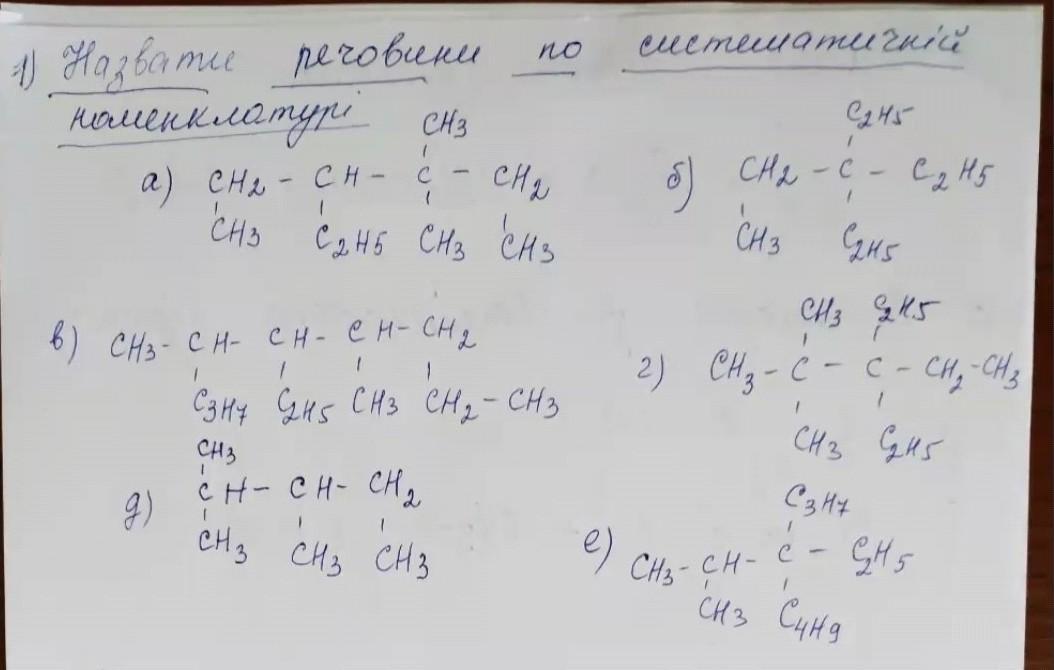 1) Назвати речовини по систематичній
номенклатурі
CH3
а) CH2 - CH - C - CH2
CH3 C2H5 CH3 CH3
C2H5
б) CH2 - C - C2H5
CH3 C2H5
в) CH3 - CH - CH - CH - CH2
C3H7 C2H5 CH3 CH2 - CH3
CH3 C2H5
г) CH3 - C - C - CH2 - CH3
CH3 C2H5
CH3
д) CH - CH - CH2
CH3 CH3 CH3
C3H7
е) CH3 - CH - C - C2H5
CH3 C4H9